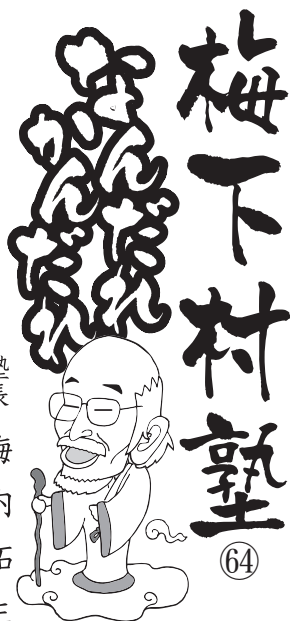 梅下村塾
64
なんだれ
かんだれ
塾長 梅内拓生